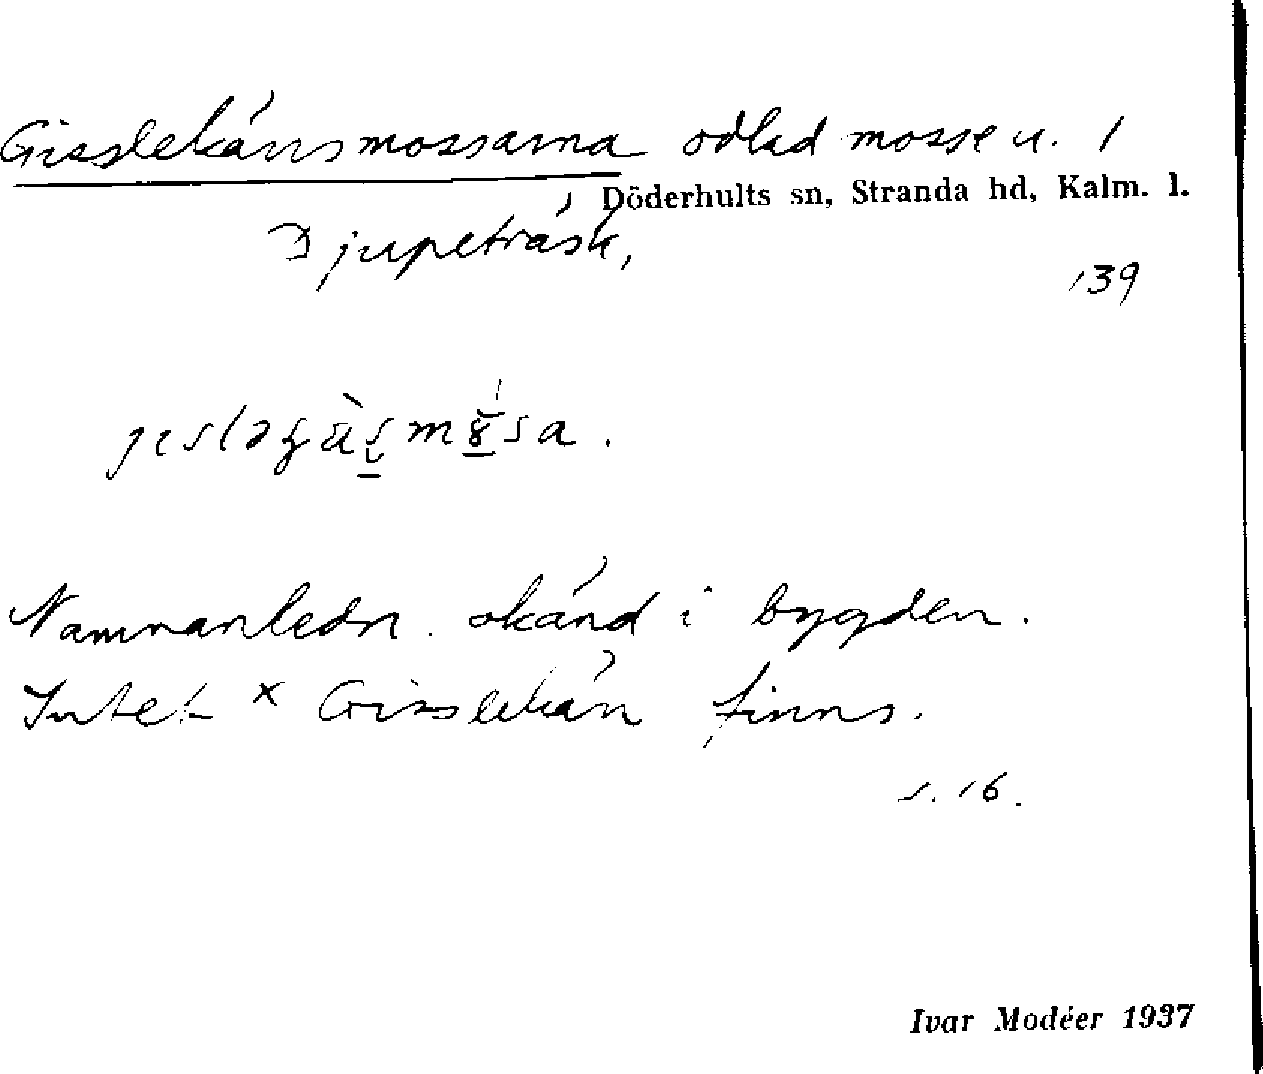 Gisslekärrsmossarna odlad mosse u. 1
Döderhults sn, Stranda hd, Kalm. l.
Djupeträsk,
139
Namnanledn. okänd i bygden.
Intet × Gisslekärr finns.
s. 16.
Ivar Modéer 1937